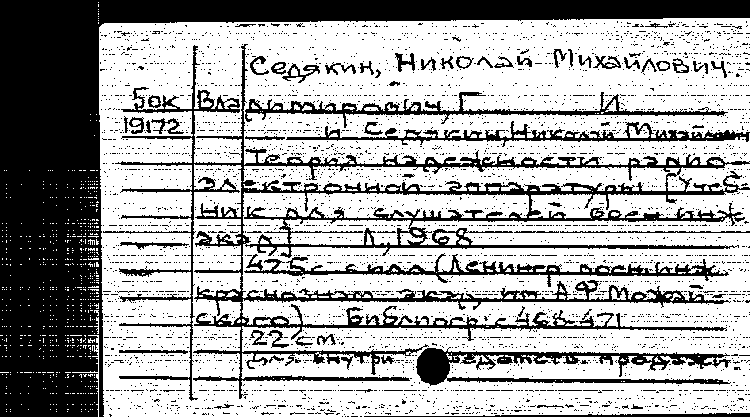 Седякин, Николай Михайлович.
5ок Владимирович, Г И
19172 и Седякин, Николай Михайлович
Теория надежности радио-
электронной аппаратуры [Учеб-
ник для слушателей воен инж
акад] Л., 1968
475 с с илл (Ленингр воен. инж
краснознам акад им А Ф Можай-
ского) Библиогр: с 468-471
22 см.
Для внутри ведомств. продажи.